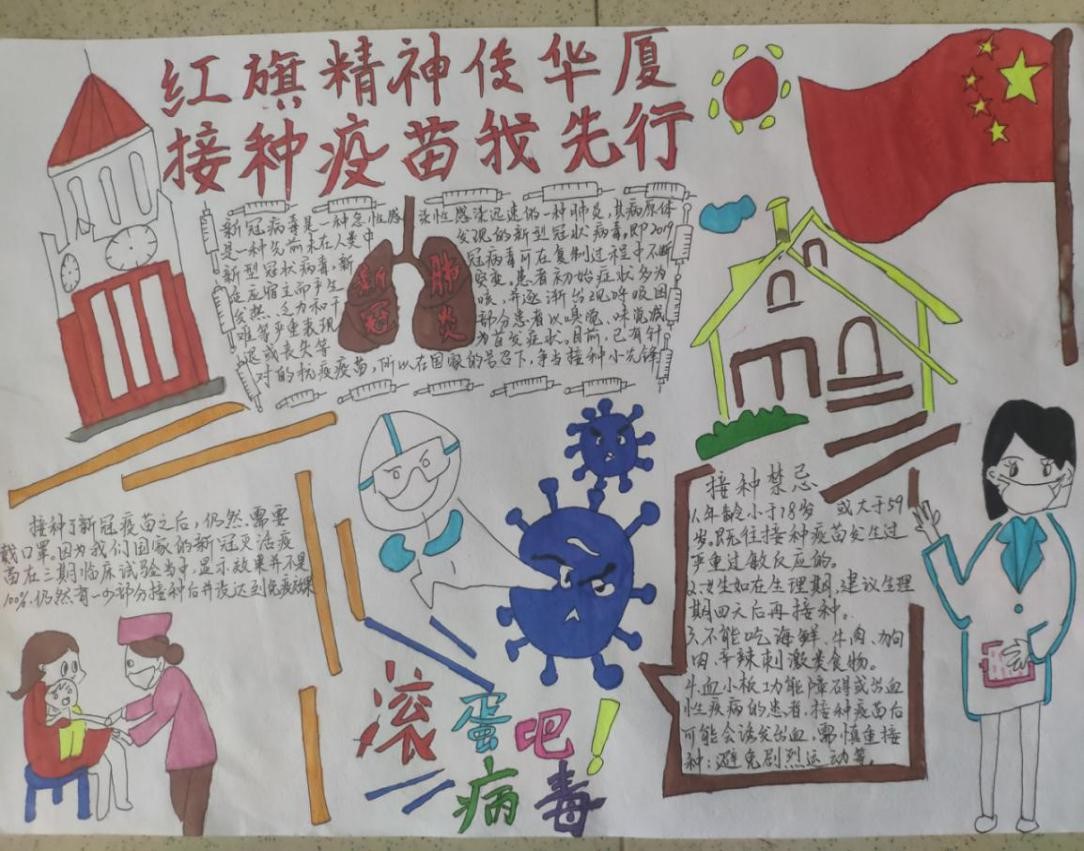 红旗精神传华厦
接种疫苗我先行
新冠病毒是一种急性感染性感染迅速的一种肺炎,其病原体
是一种先前未在人类中发现的新型冠状病毒,即2019
新型冠状病毒,新冠病毒可在复制过程中不断
适应宿主而产生突变。患者初始症状多为
发热、乏力和干咳,并逐渐出现呼吸困
难等严重表现部分患者以嗅觉、味觉减
退或丧失等为首发症状。目前,已有针
对的抗疫疫苗,所以在国家的号召下,争当接种小先锋
新 肺
冠 炎
接种了新冠疫苗之后,仍然需要
戴口罩。因为我们国家的新冠灭活疫
苗在三期临床试验当中,显示效果并不是
100%,仍然有一少部分接种后并没达到免疫效果
接种禁忌
1.年龄小于18岁 或大于59
岁。既往接种疫苗发生过
严重过敏反应的。
2.女生如在生理期,建议生理
期四天后再接种。
3.不能吃海鲜、牛肉、狗
肉、辛辣刺激类食物。
4.血小板功能障碍或出血
性疾病的患者,接种疫苗后
可能会诱发出血,需慎重接
种;避免剧烈运动等。
滚蛋吧!
病毒